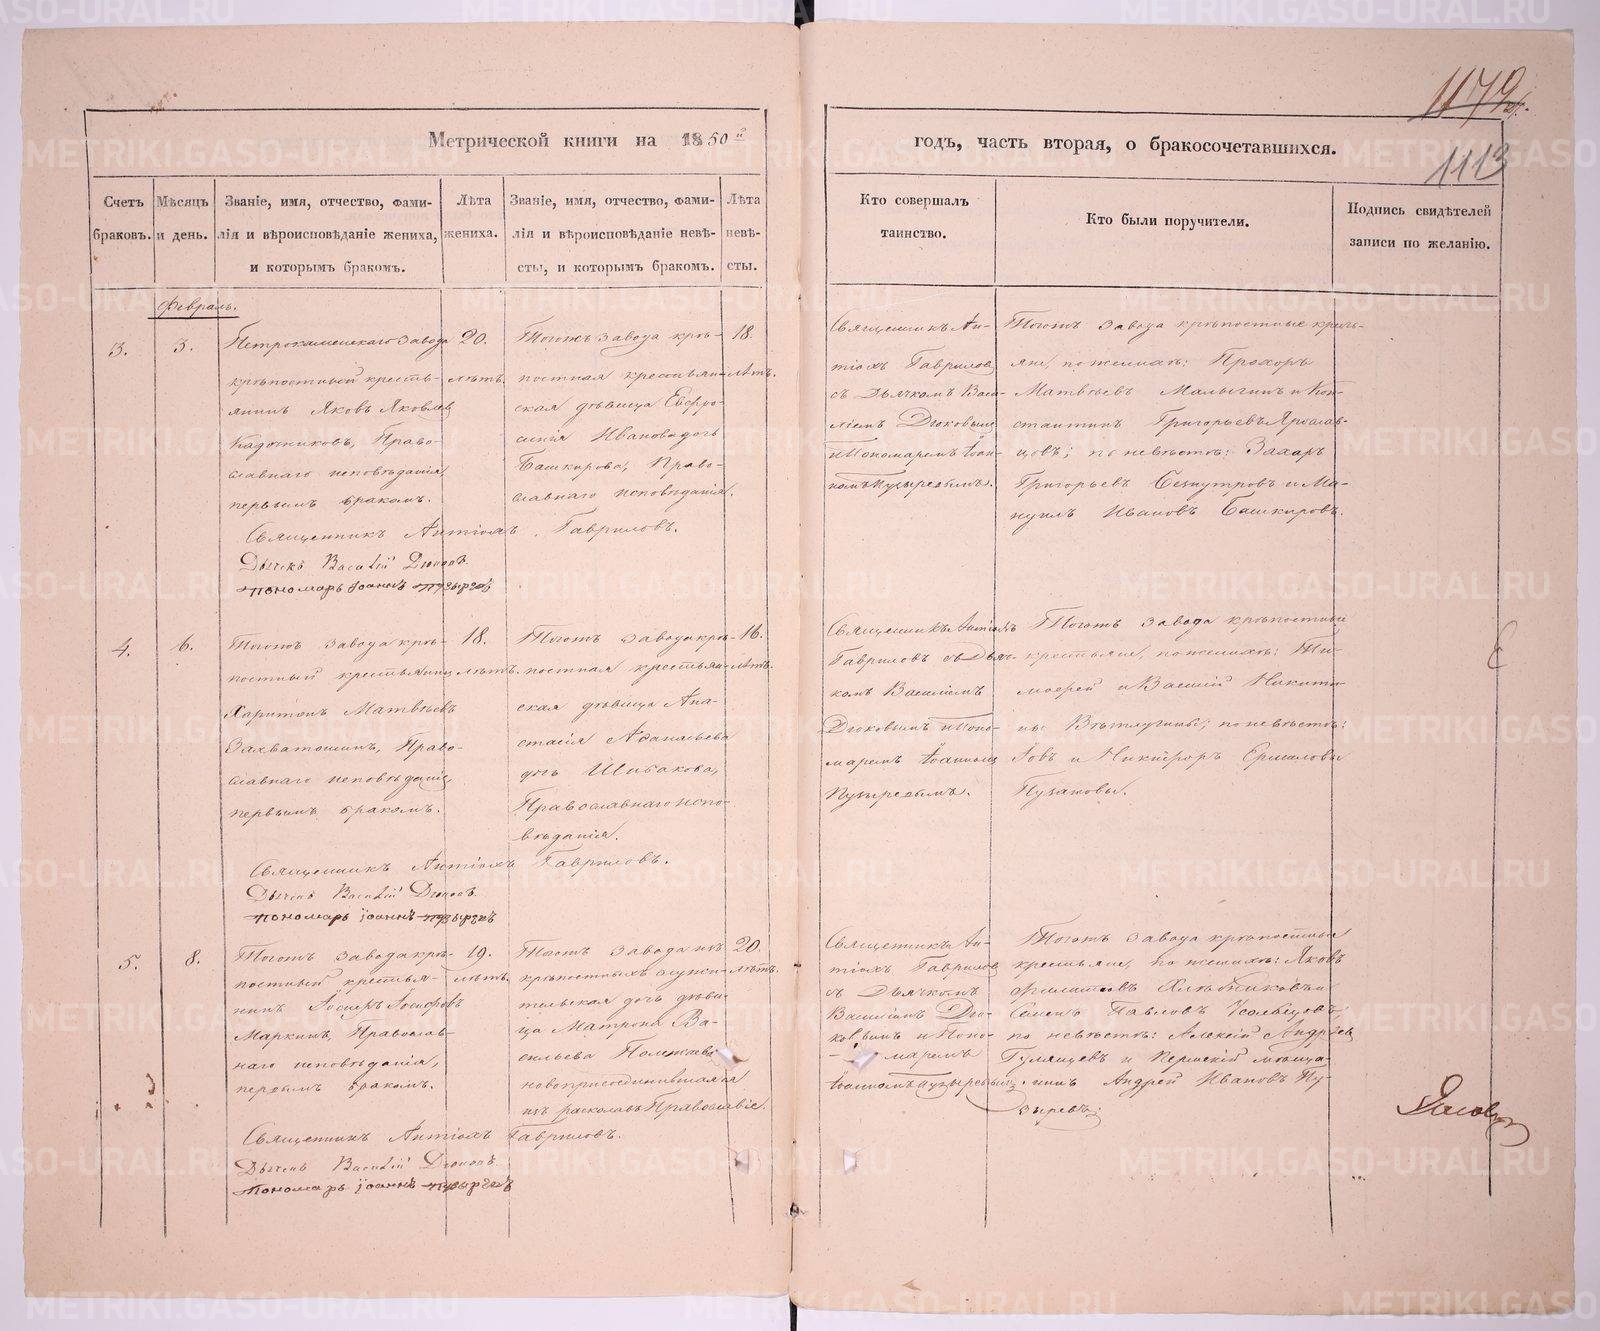 1179
1113
Метрической книги на 1850й
годъ, часть вторая, о бракосочетавшихся.
Счетъ
браковъ.
Мѣсяцъ
и день.
Званіе, имя, отчество, фами-
лія и вѣроисповѣданіе жениха,
и которымъ бракомъ.
Лѣта
жениха.
Званіе, имя, отчество, фами-
лія и вѣроисповѣданіе невѣ-
сты, и которымъ бракомъ.
Лѣта
невѣ-
сты.
Кто совершалъ
таинство.
Кто были поручители.
Подпись свидѣтелей
записи по желанію.
Февраль.
3.
3.
Петрокаменскаго завода
крѣпостный кресть-
янинъ Яковъ Яковлев
Кадочниковъ, Право-
славнаго исповѣданія,
первымъ бракомъ.
20.
лѣтъ.
Тогожъ завода крѣ-
постная крестьян-
ская дѣвица Евфро-
синія Иванова дочь
Башкирова, Право-
славнаго исповѣданія.
18.
лѣтъ.
Священникъ Ан-
тіохъ Гавриловъ
съ Дьячкомъ Васи-
ліемъ Дюковымъ
и Пономаремъ Іоан-
номъ Пузыревымъ.
Тогожъ завода крѣпостные кресть-
яне, по женихѣ: Прохоръ
Матвѣевъ Малыгинъ и Кон-
стантинъ Григорьевъ Ярослав-
цовъ; по невѣстѣ: Захаръ
Григорьевъ и Ма-
нуилъ Ивановъ Башкировъ.
Священникъ Антіохъ Гавриловъ.
Дьячекъ Василій Дюковъ.
Пономарь Іоаннъ Пузыревъ
4.
6.
Тогожъ завода крѣ-
постный крестьянинъ
Харитонъ Матвѣевъ
Захватошинъ, Право-
славнаго исповѣданія,
первымъ бракомъ.
18.
лѣтъ.
Тогожъ завода крѣ-
постная крестьян-
ская дѣвица Ана-
стасія Аѳанасьева
дочь Шибакова,
Православнаго испо-
вѣданія.
16.
лѣтъ.
Священникъ Антіохъ
Гавриловъ съ Дьяч-
комъ Василіемъ
Дюковымъ и Поно-
маремъ Іоанномъ
Пузыревымъ.
Тогожъ завода крѣпостные
крестьяне, по женихѣ: Ти-
моѳей и Василій Никити-
ны Вѣтлугины; по невѣстѣ:
Іовъ и Никифоръ Ермиловы
Пузановы.
Священникъ Антіохъ Гавриловъ.
Дьячекъ Василій Дюковъ.
Пономарь Іоаннъ Пузыревъ
5.
8.
Тогожъ завода крѣ-
постный крестья-
нинъ Іосифъ Іосифовъ
Маркинъ, Православ-
наго исповѣданія,
первымъ бракомъ.
19.
лѣтъ.
Тогожъ завода изъ
крѣпостныхъ служи-
тельская дочь дѣви-
ца Матрона Ва-
сильева
новоприсоединившаяся
изъ раскола въ Православіе.
20.
лѣтъ.
Священникъ Ан-
тіохъ Гавриловъ
съ Дьячкомъ
Василіемъ Дю-
ковымъ и Поно-
маремъ
Іоанномъ Пузыревымъ.
Тогожъ завода крѣпостные
крестьяне, по женихѣ: Яковъ
Филиповъ Хлѣбниковъ и
Семенъ Павловъ Усольцовъ;
по невѣстѣ: Алексій Андреев
Гулящевъ и Пермскій мѣща-
нинъ Андрей Ивановъ Пу-
зыревъ.
Священникъ Антіохъ Гавриловъ.
Дьячекъ Василій Дюковъ.
Пономарь Іоаннъ Пузыревъ